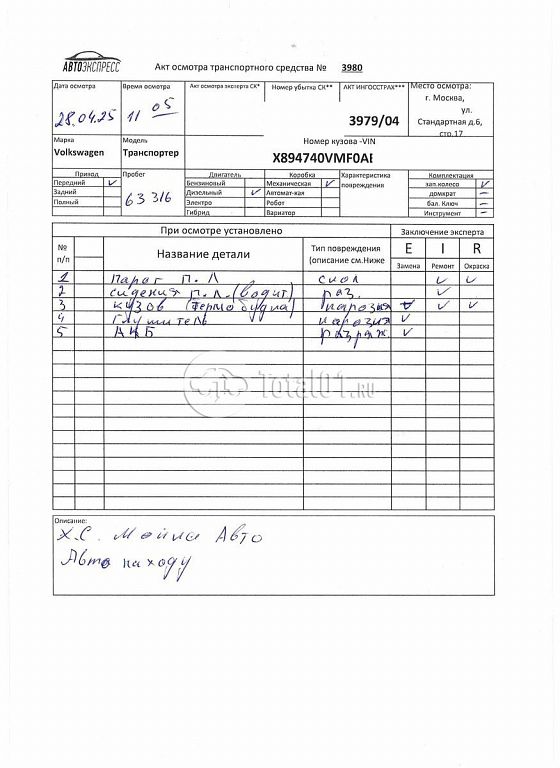 АВТОЭКСПРЕСС
Акт осмотра транспортного средства № 3980
Дата осмотра Время осмотра Акт осмотра эксперта СК* Номер убытка СК** АКТ ИНГОССТРАХ*** Место осмотра:
г. Москва,
28.04.25 11 05 ул.
3979/04 Стандартная д.6,
стр.17
Марка Модель Номер кузова -VIN
Volkswagen Транспортер X894740VMF0AE
Привод Пробег Двигатель Коробка Характеристика Комплектация
Передний ✓ Бензиновый Механическая ✓ повреждения зап.колесо ✓
Задний 63 316 Дизельный ✓ Автомат-кая домкрат –
Полный Электро Робот бал. Ключ –
Гибрид Вариатор Инструмент –
При осмотре установлено Заключение эксперта
№ п/п Название детали Тип повреждения (описание см.Ниже E I R
Замена Ремонт Окраска
1 Порог П.Л скол ✓ ✓
2 сидения П.Л.(водит) раз. ✓
3 Кузов (термобудка) карозия ✓ ✓ ✓
4 Глушитель карозия ✓
5 АКБ разряж. ✓
Total01.RU
Описание:
Х.С. Мойка Авто
Авто на ходу